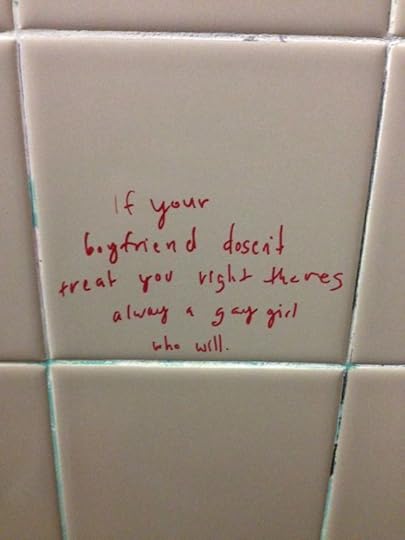 If your
boyfriend dosen't
treat you right theres
alway a gay girl
who will.